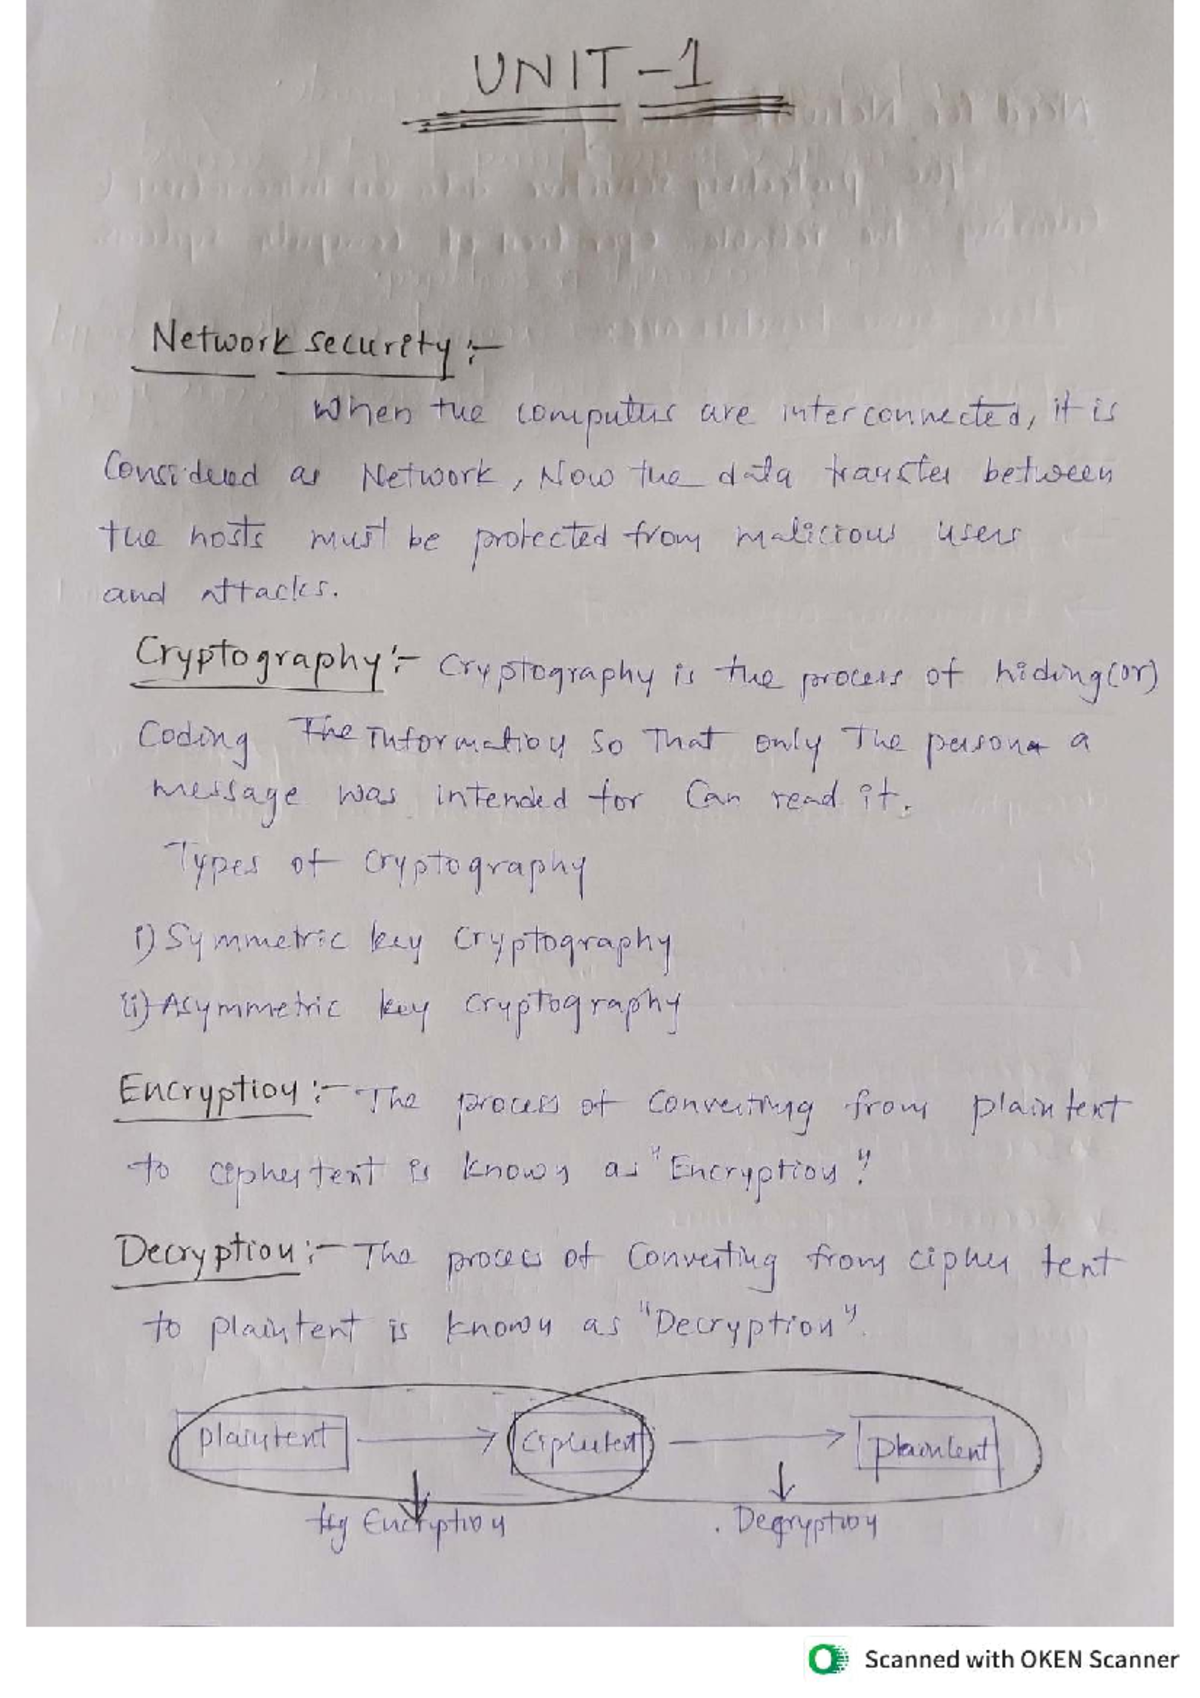 UNIT-1
Network security:-
When the computers are interconnected, it is
Considered as Network, Now the data transfer between
the hosts must be protected from malicious users
and attacks.
Cryptography:- Cryptography is the process of hiding(or)
Coding The Information So That only The person a
message was intended for Can read it.
Types of Cryptography
i) Symmetric key Cryptography
ii) Asymmetric key Cryptography
Encryption:- The process of Converting from plaintext
to ciphertext is known as "Encryption".
Decryption:- The process of Converting from cipher text
to plaintext is known as "Decryption".
plaintext → ciphertext → plaintext
Encryption Decryption
Scanned with OKEN Scanner